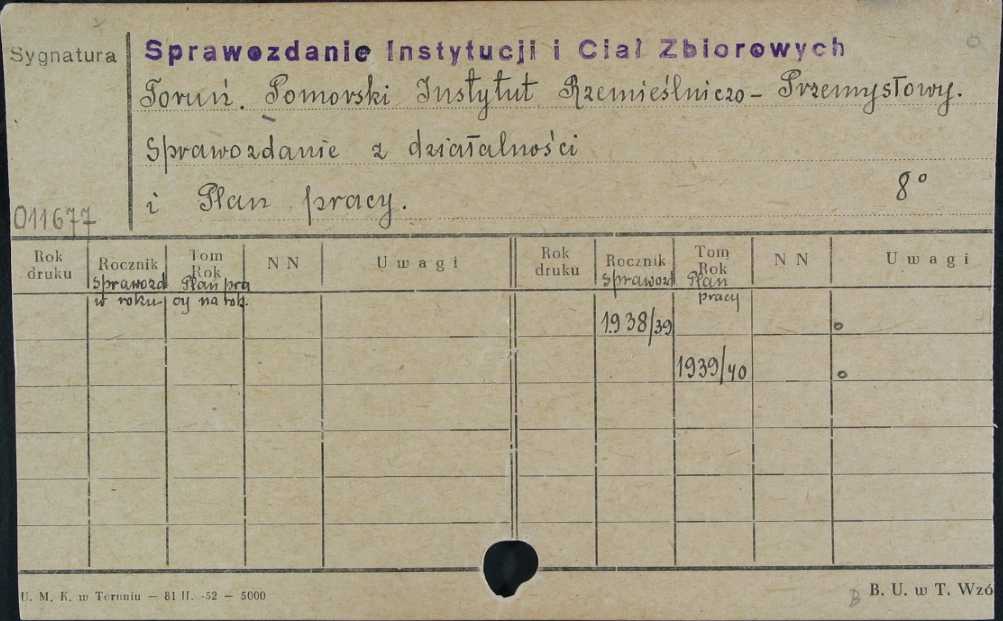 Sygnatura
Sprawozdanie Instytucji i Ciał Zbiorowych
Toruń. Pomorski Instytut Rzemieślniczo-Przemysłowy.
Sprawozdanie z działalności
i Plan pracy. 8°
011677
Rok druku Rocznik Tom Rok NN Uwagi Rok druku Rocznik Tom Rok NN Uwagi
Sprawozd w roku Plan pracy na rok. Sprawozd Plan pracy
1938/39
1939/40
U. M. K. w Toruniu — 81 II. -52 — 5000
B. U. w T. Wzó